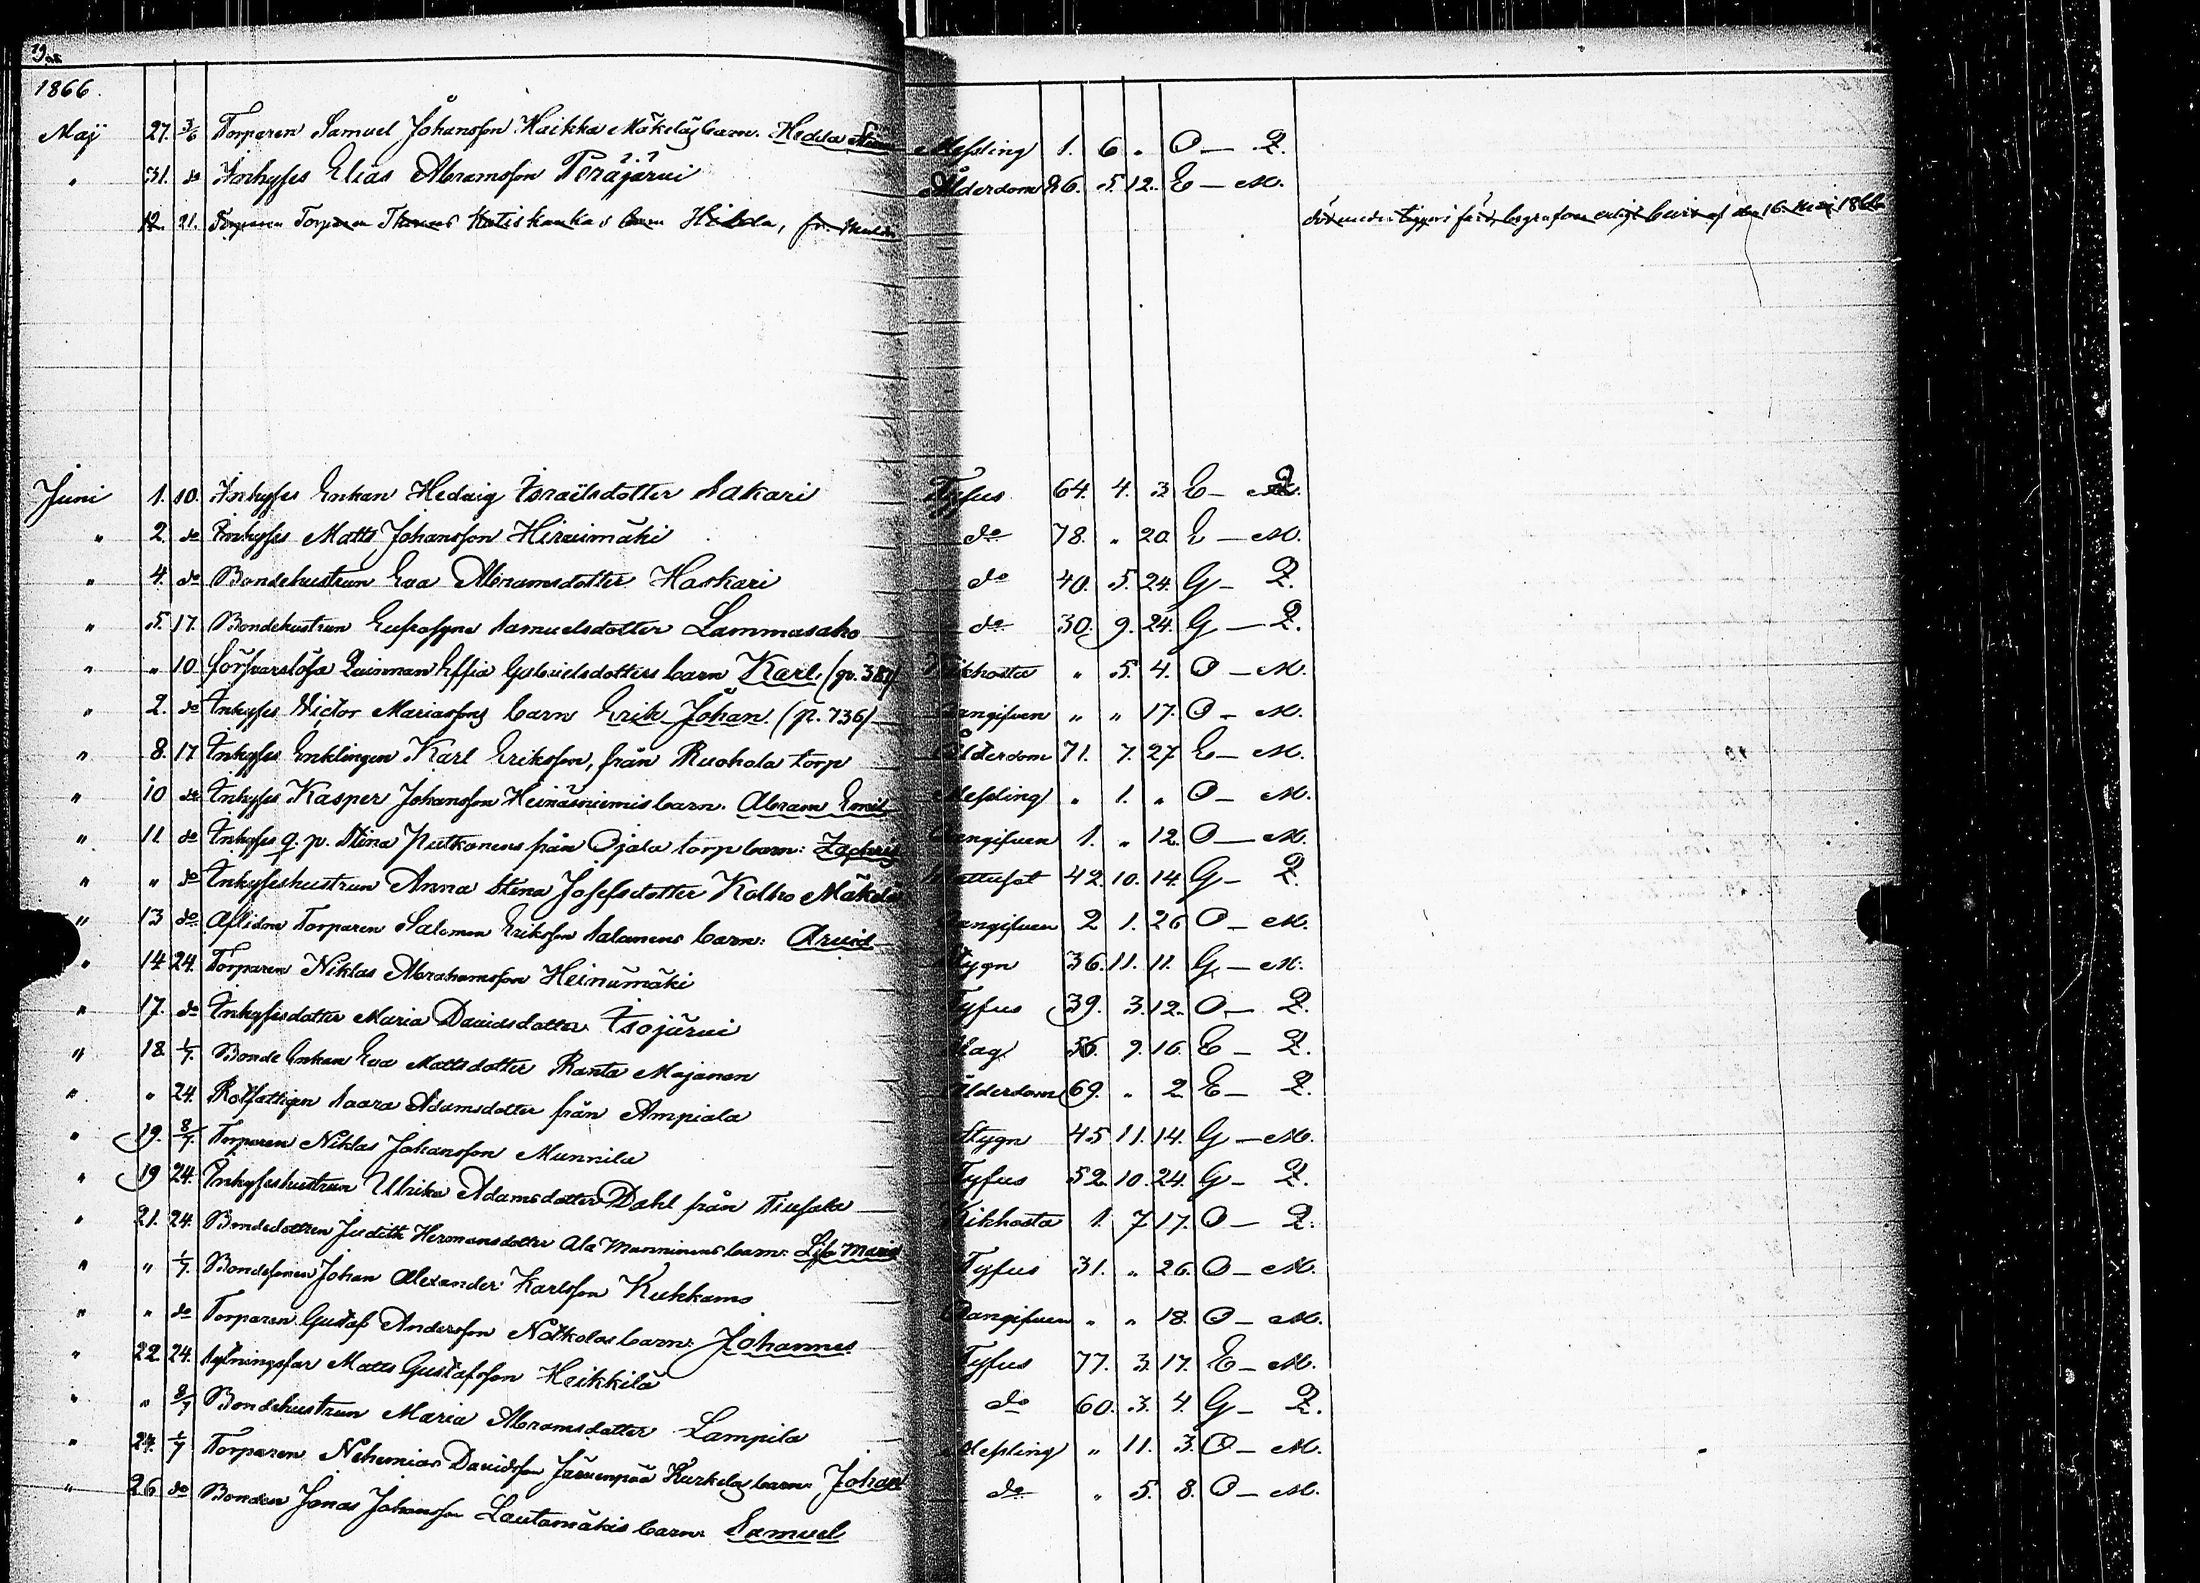 1866.
Maj 27. 3/6 Torparen Samuel Johansson Haikka Mäkeläs barn. Hedda Messling 1. 6 „ O — Q.
„ 31. do Inhyses Elias Abramsson Peräjärvi Ålderdom 86. 5. 12. E — M.
12. 21. Torparen Thomas barn Hilda, död under begrafven enligt bevis af den 16 Maj 1866
Juni 1. 10. Inhyses Enkan Hedvig Israëlsdotter Sakari Tyfus 64. 4. 3. E — Q.
„ 2. do Inhyses Matts Johansson Hirvimäki do 78. „ 20 E — M.
„ 4. do Bondehustrun Eva Abramsdotter Haskari do 40. 5. 24. G — Q.
„ 5. 17. Bondehustrun Eufrosyne Samuelsdotter Lammasaho do 30. 9. 24. G — Q.
„ „ 10 försvarslösa Qvinnan Effia Gabrielsdotters barn Karl. (p. 381) Kikhosta „ 5. 4. O — M.
„ 2. do Inhyses Victor Mariassons barn Erik Johan. (p. 736) Oangifven „ „ 17. O — M.
„ 8. 17 Inhyses Enklingen Karl Eriksson, från Ruohola torp Ålderdom 71. 7. 27 E — M.
„ 10 do Inhyses Kasper Johansson Heinäsniemis barn. Abram Emil Messling „ 1. „ O — M.
„ 11 do Inhyses q. p. Stina Putkonens från Ojala torp barn: Zachris Oangifven 1. „ 12. O — M.
„ „ do Inhyseshustrun Anna Stina Josefsdotter Kolho Mäkelä Vattusot 42. 10. 14. G — Q.
„ 13 do Aflidne Torparen Salomon Eriksson Salonens barn: Arvid Oangifven 2 1. 26 O — M.
„ 14 24. Torparen Niklas Abrahamsson Heinämäki Stygn 36. 11. 11. G — M.
„ 17. do Inhysesdotter Maria Davidsdotter Isojärvi Tyfus 39. 3. 12. O — Q.
„ 18. 1/7. Bonde Enkan Eva Mattsdotter Ranta Majanen Slag 56. 9. 16. E — Q.
„ „ 24. Rotfattigen Saara Adamsdotter från Ampiala Ålderdom 69. „ 2 E — Q.
„ 19. 8/7. Torparen Niklas Johansson Munnila Stygn 45 11. 14. G — M.
„ 19 24. Inhyseshustrun Ulrika Adamsdotter Dahl från Tiusala Tyfus 52. 10. 24. G — Q.
„ 21. 24. Bondedottren Judith Hermansdotter Ala Manninens barn: Lisa Maria Kikhosta 1. 7 17. O — Q.
„ „ 1/7. Bondesonen Johan Alexander Karlsson Kukkamo Tyfus 31. „ 26. O — M.
„ „ do Torparen Gustaf Andersson Notkolas barn: Johannes Oangifven „ „ 18. O — M.
„ 22. 24. Sytningsfar Matts Gustafsson Heikkilä Tyfus 77. 3. 17. E — M.
„ „ 8/7 Bondehustrun Maria Abramsdotter Lampila do 60. 3. 4. G — Q.
„ 24. 1/7 Torparen Nehemias Davidsson Järvenpää Kurkelas barn: Johan Messling „ 11. 3. O — M.
„ 26 do Bonden Jonas Johansson Lautamäkis barn: Samuel do „ 5. 8. O — M.